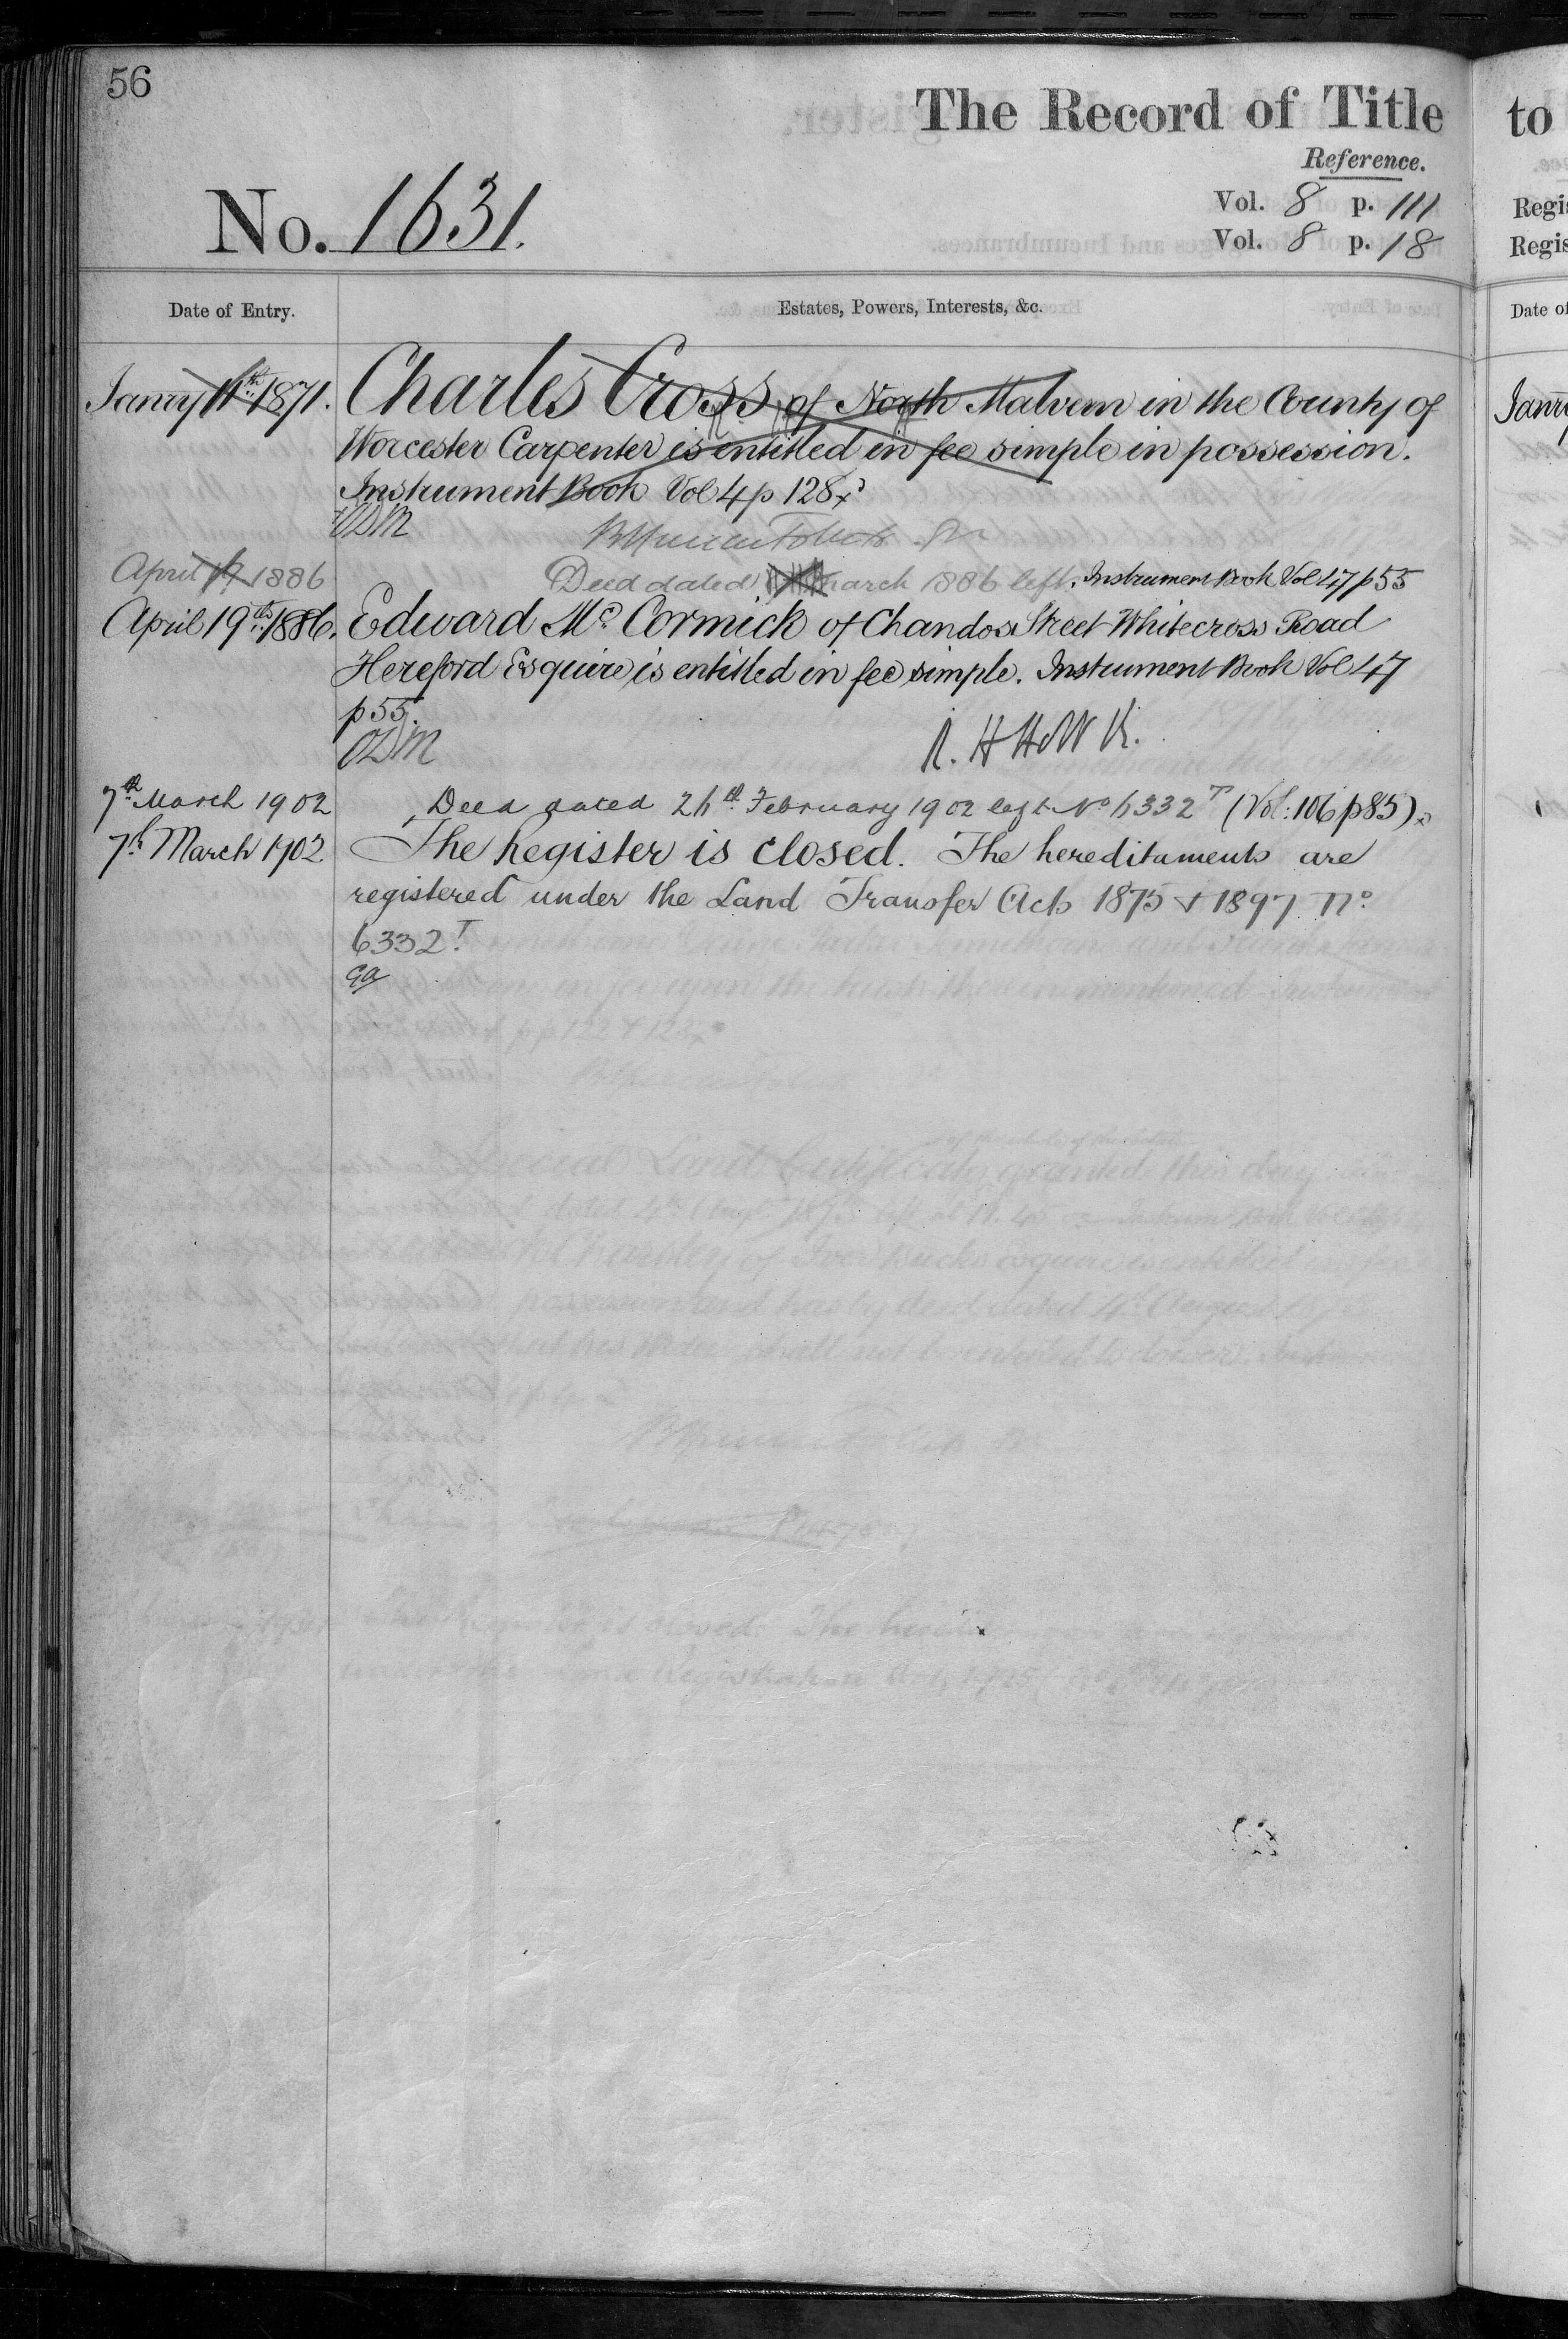 56
The Record of Title
to
Reference.
No. 1631.
Vol. 8 p. 111
Vol. 8 p. 18
Regis
Regis
Date of Entry.
Estates, Powers, Interests, &c.
Date of
Janry 11th 1871. Charles Cross of North Malvern in the County of
Worcester Carpenter is entitled in fee simple in possession.
Instrument Book Vol 4 p 128
April 17 1886 Deed dated March 1886 left. Instrument Book Vol 47 p 55
April 19th 1886. Edward Mc Cormick of Chandos Street Whitecross Road
Hereford Esquire is entitled in fee simple. Instrument Book Vol 47
p 55.
7th March 1902 Deed dated 26th February 1902 left No 6332 T (Vol: 106 p 85)
7th March 1902 The Register is closed. The hereditaments are
registered under the Land Transfer Acts 1875 & 1897 No
6332 T
Janry